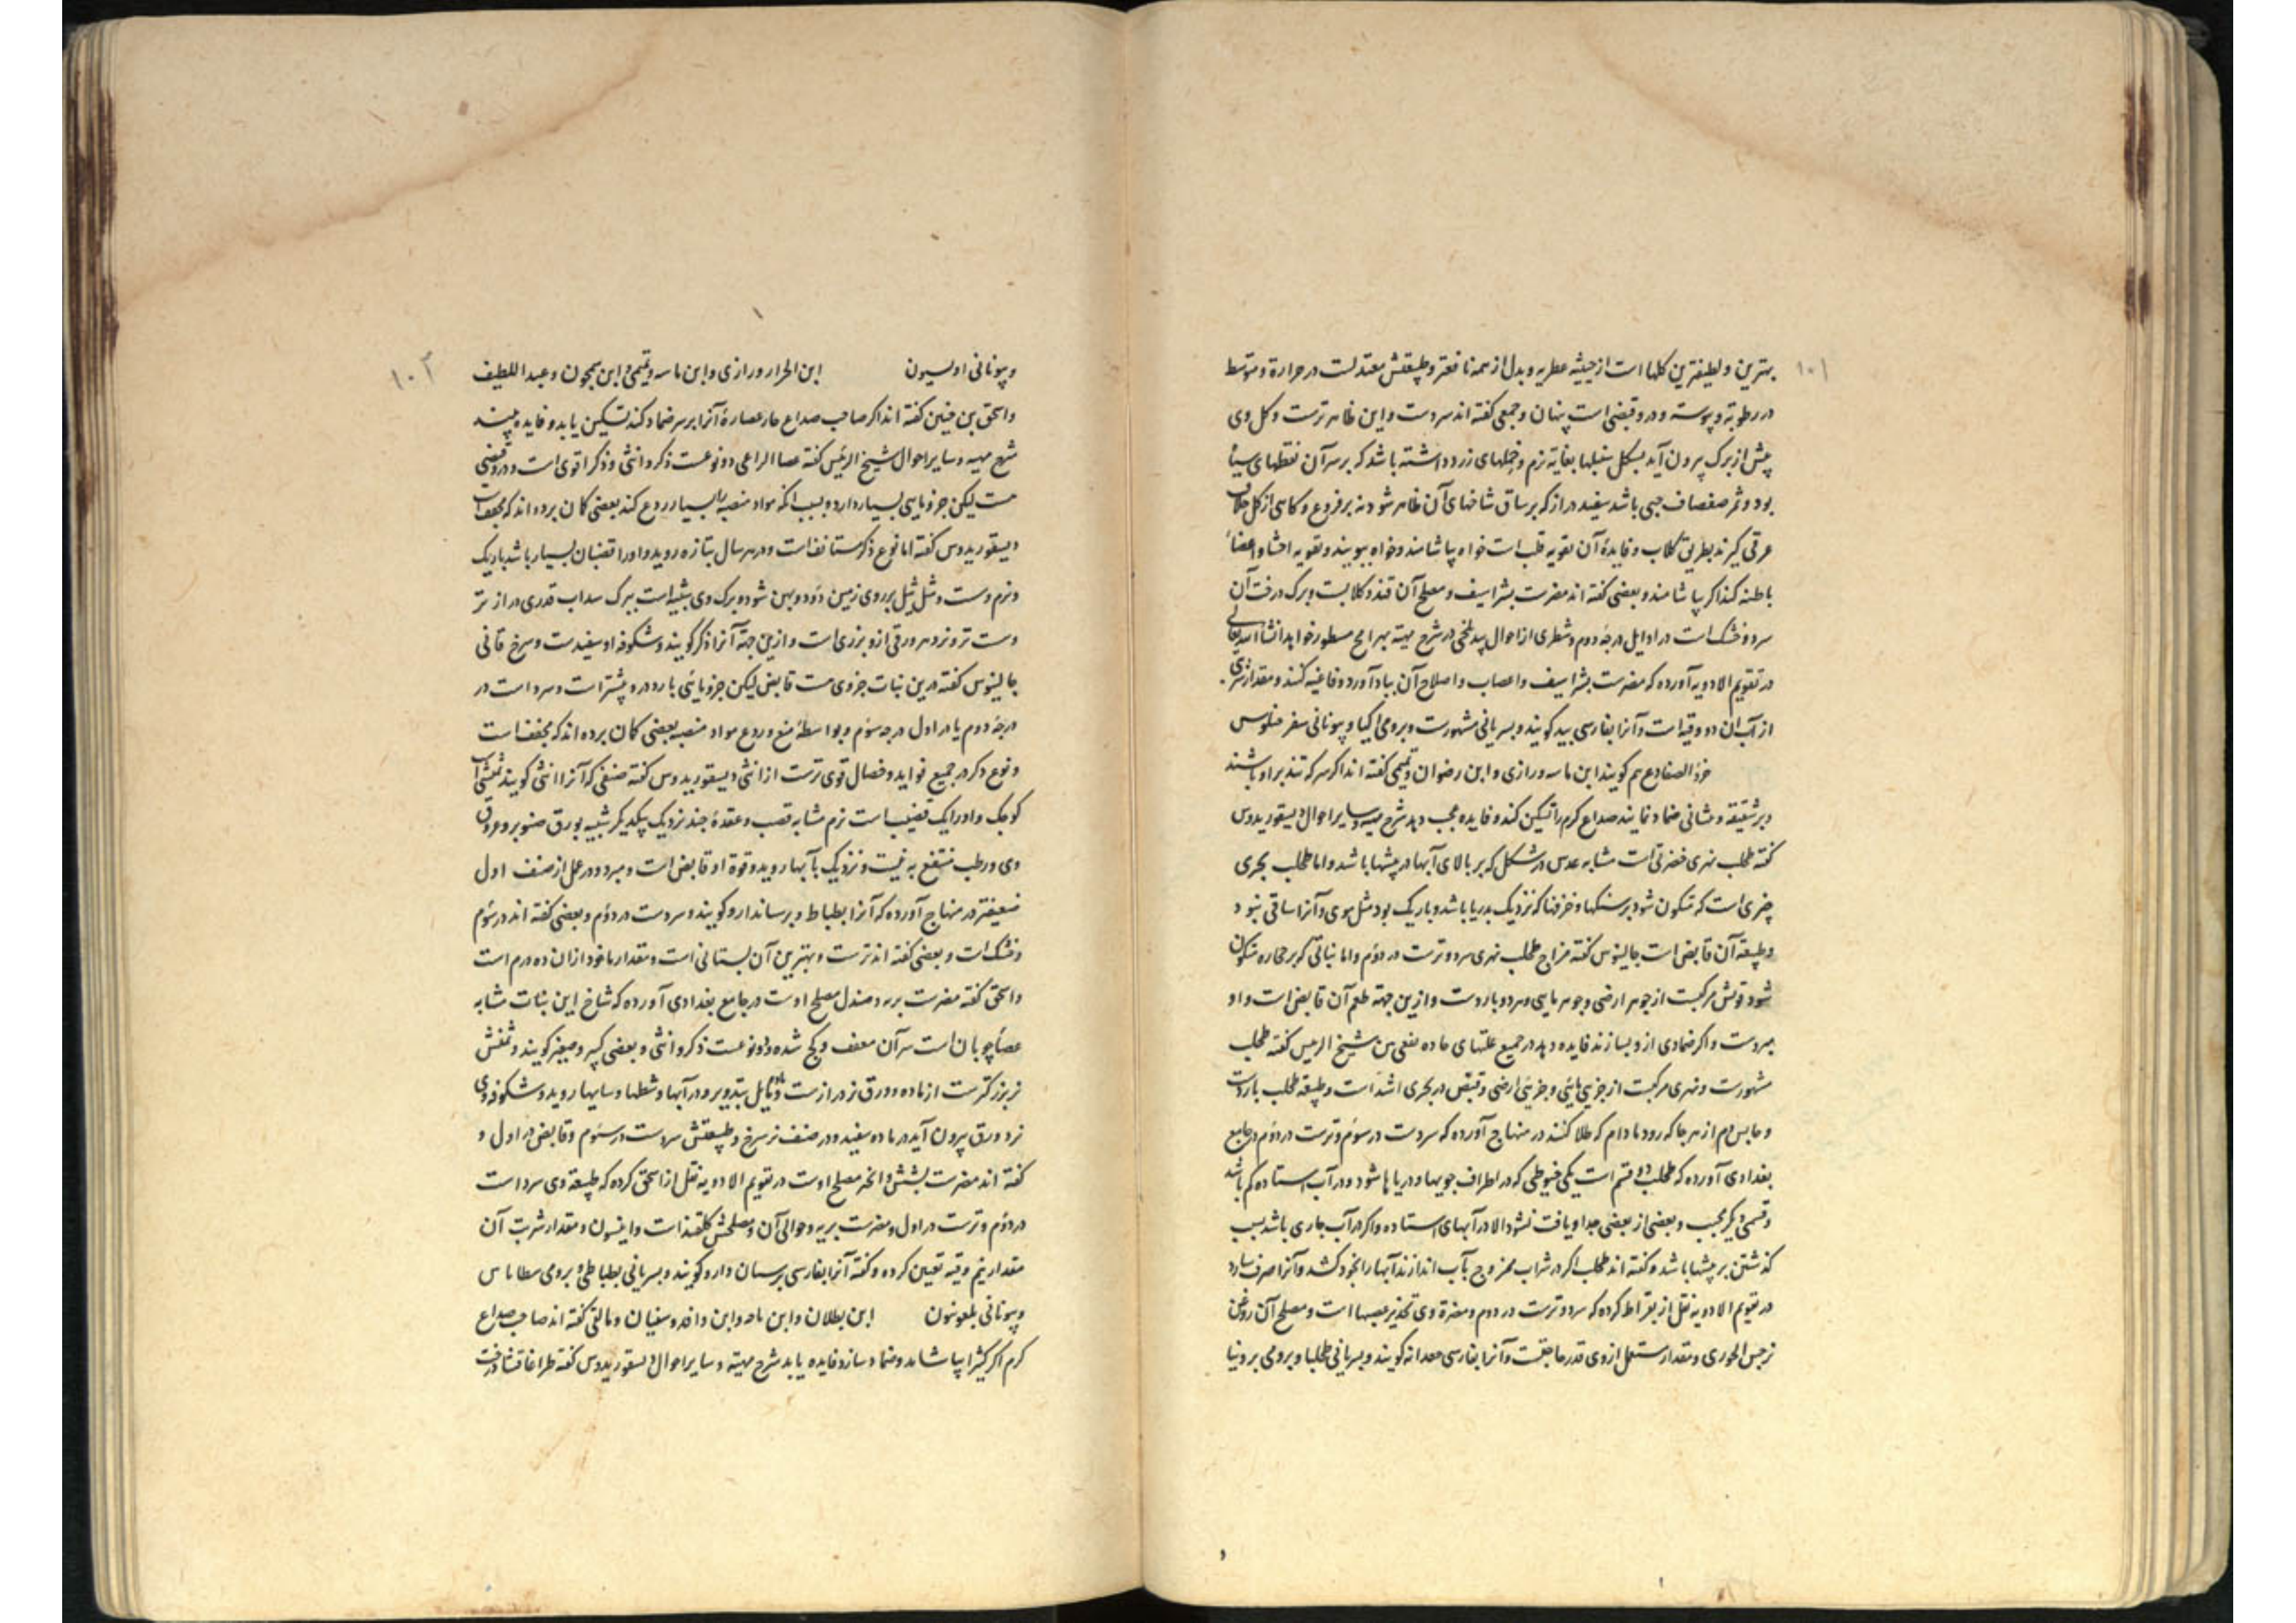 ۱۰۱
بهترین و لطیفترین کلها است از حیثیه عطریه و بدل از همه نافعتر و طبیعتش معتدلست در حرارة و متوسط
در رطوبة و یبوسة و درو قبضی است پنهان و جمعی کفته اند سردست و این ظاهرترست و کل وی
پیش از برک بیرون آید بشکل سنبلها بغایة نرم و خملهای زرد داشته باشد که بر سر آن نقطهای سیاه
بود و ثمر صفصاف حبی باشد سفید دراز که بر ساق شاخهای آن ظاهر شود نه بر فروع و کاهی از کل خلاف
عرقی کیرند بطریق کلاب و فایدۀ آن تقویه قلب است خواه بیاشامند و خواه ببویند و تقویه احشا و اعضاء
باطنه کند اکر بیاشامند و بعضی کفته اند مضرت بشراسیف و مصلح آن قند و کلابست و برک درخت آن
سرد و خشک است در اوایل درجۀ دوم و شطری از احوال بید بلخی در شرح هیئة بهرامج مسطور خواهد شد انشاالله تعالی
در تقویم الادویه آورده که مضرت بشراسیف و اعصاب و اصلاح آن بباد آورد و فاغیه کنند و مقدار شربتی
از آب آن دو وقیه است و آنرا بفارسی بید کویند و بسریانی مشهورست و برومی اکیا و بیونانی سفر خیلوس
خرؤ الضفادع هم کویند ابن ماسه و رازی و ابن رضوان و تمیمی کفته اند اکر سرکه تند برو پاشند
و بر شقیقه و پیشانی ضماد نمایند صداع کرم را تسکین کند و فایده عجب دهد شرح هیئة و سایر احوال دیسقوریدوس
کفته طحلب نهری خضرتی است مشابه عدس در شکل که بر بالای آبها در بیشها باشد و اما طحلب بحری
چیزی است که متکون شود بر سنکها و خزفها که نزدیک بدریا باشد و باریک بود مثل موی و آنرا ساقی نبود
و طبیعة آن قابض است جالینوس کفته مزاج طحلب نهری سرد و ترست در دوم و اما نباتی که بر حجاره متکون
شود قوتش مرکبست از جوهر ارضی و جوهر مایی و هر دو باردست و ازین جهة طعم آن قابض است و او
مبردست و اکر ضمادی ازو بسازند فایده دهد در جمیع علتهای حاده نفعی بین شیخ الرییس کفته طحلب
مشهورست و نهری مرکبست از جزیی مایی و جزیی ارضی و قبض در بحری اشد است و طبیعة طحلب باردست
و حابس دم از هر جا که رود مادام که طلا کنند در منهاج آورده که سردست در سوم و ترست در دوم در جامع
بغدادی آورده که طحلب دو قسم است یکی خیوطی که در اطراف جویها و دریاها شود و در آب استاده کم باشد
و قسمی دیکر محبب و بعضی از بعضی جدا و یافت نشود الا در آبهای استاده و اکر در آب جاری باشد بسبب
کذشتن بر بیشها باشد و کفته اند طحلب اکر در شراب ممزوج بآب اندازند آبها را بخود کشد و آنرا صرف سازد
در تقویم الادویه نقل از بقراط کرده که سرد و ترست در دوم و مضرة وی تخدیر عصبها است و مصلح آن روغن
نرجس الجوری و مقدار مستعمل از وی قدر حاجتست و آنرا بفارسی کویند و بسریانی طحلبا و برومی برونیا
۱۰۲
و بیونانی اولسیون ابن الجزار و رازی و ابن ماسه و تمیمی و ابن سمجون و عبد اللطیف
و اسحق بن حنین کفته اند اکر صاحب صداع حار عصارۀ آنرا بر سر ضماد کند تسکین یابد و فایده بیند
شرح هیئة و سایر احوال شیخ الرئیس کفته عصا الراعی دو نوعست ذکر و انثی و ذکر اقوی است و درو قبضی
هست لیکن جزو مایی بسیار دارد و بسبب آنکه مواد منصبه را بسیار ردع کند بعضی کمان برده اند که مجفف است
دیسقوریدوس کفته اما نوع ذکر مستانف است و در هر سال بتازه روید و اورا قضبان بسیار باشد باریک
و نرم و مثل ثیل بر روی زمین دود و پهن شود و برک وی شبیه است ببرک سداب قدری درازتر
و سست تر و نزد هر ورقی ازو بزری است و ازین جهة آنرا ذکر کویند و شکوفه او سفیدست و سرخ قانی
جالینوس کفته درین نبات جزوی هست قابض لیکن جزو مائی بارد درو بیشتر است و سرد است در
درجۀ دوم یا در اول درجه سوم و بواسطۀ منع و ردع مواد منصبه بعضی کمان برده اند که مجفف است
و نوع ذکر در جمیع فواید و خصال قوی ترست از انثی دیسقوریدوس کفته صنفی که آنرا انثی کویند تمنشی است
کوچک و اورا یک قضیب است نرم مشابه قصب و عقدۀ چند نزدیک بیکدیکر شبیه بورق صنوبر و عروق
وی در طب منتفع به نیست و نزدیک بآبها روید و قوة او قابض است و مبرد و در عمل از صنف اول
ضعیفتر در منهاج آورده که آنرا بطباط و برسیاندارو کویند و سردست در دوم و بعضی کفته اند در سوم
و خشک است و بعضی کفته اند ترست و بهترین آن بستانی است و مقدار ماخوذ از ان ده درم است
و اسحق کفته مضرت بریه و صندل مصلح اوست در جامع بغدادی آورده که شاخ این نبات مشابه
عصا چوبان است سر آن معقف و کج شده و دو نوعست ذکر و انثی و بعضی کبیر و صغیر کویند و تمنش
نر بزرکترست از ماده و ورق نر درازست و مایل بتدویر و در آبها و شطها و سایها روید و شکوفه وی
نزد ورق بیرون آید در ماده سفید و در صنف نر سرخ و طبیعتش سردست در سوم و قابض در اول و
کفته اند مضرت بشش و انجره مصلح اوست در تقویم الادویه نقل از اسحق کرده که طبیعة وی سرد است
در دوم و ترست در اول و مضرت بریه و حوالی آن و مصلحش کلقند است و انیسون و مقدار شربت آن
مقدار نیم وقیه تعیین کرده و کفته آنرا بفارسی برسیان دارو کویند و بسریانی بطباطی و برومی
و بیونانی ابن بطلان و ابن ماجه و ابن وافد و سفیان و مالقی کفته اند صاحب صداع
کرم اکر کثیرا بیاشامد و ضماد سازد فایده یابد شرح هیئة و سایر احوال دیسقوریدوس کفته طراغاقنثا درخت